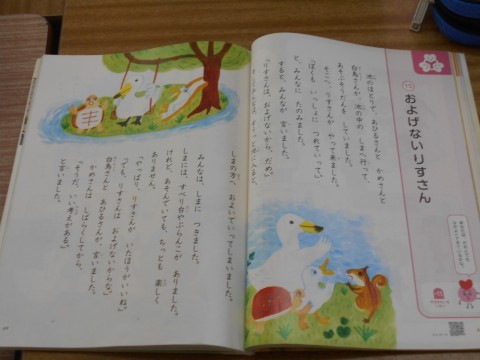 およげないりすさん
池のほとりで、あひるさんと かめさんと
白鳥さんが、池の中の しまへ行って、
あそぶそうだんを していました。
そこへ、りすさんが やって来ました。
「ぼくも いっしょに つれていってね。」
と、みんなに たのみました。
すると、みんなが 言いました。
「りすさんは、およげないから、だめ。」
しまの方へ およいでいってしまいました。
みんなは、しまに つきました。
しまには、すべり台やぶらんこが ありました。
けれど、あそんでいても、ちっとも 楽しく
ありません。
「やっぱり、りすさんが いたほうがいいね。」
「でも、りすさんは およげないからな。」
白鳥さんと あひるさんが、言いました。
かめさんは、しばらくしてから、
「そうだ、いい考えがある。」
と言いました。